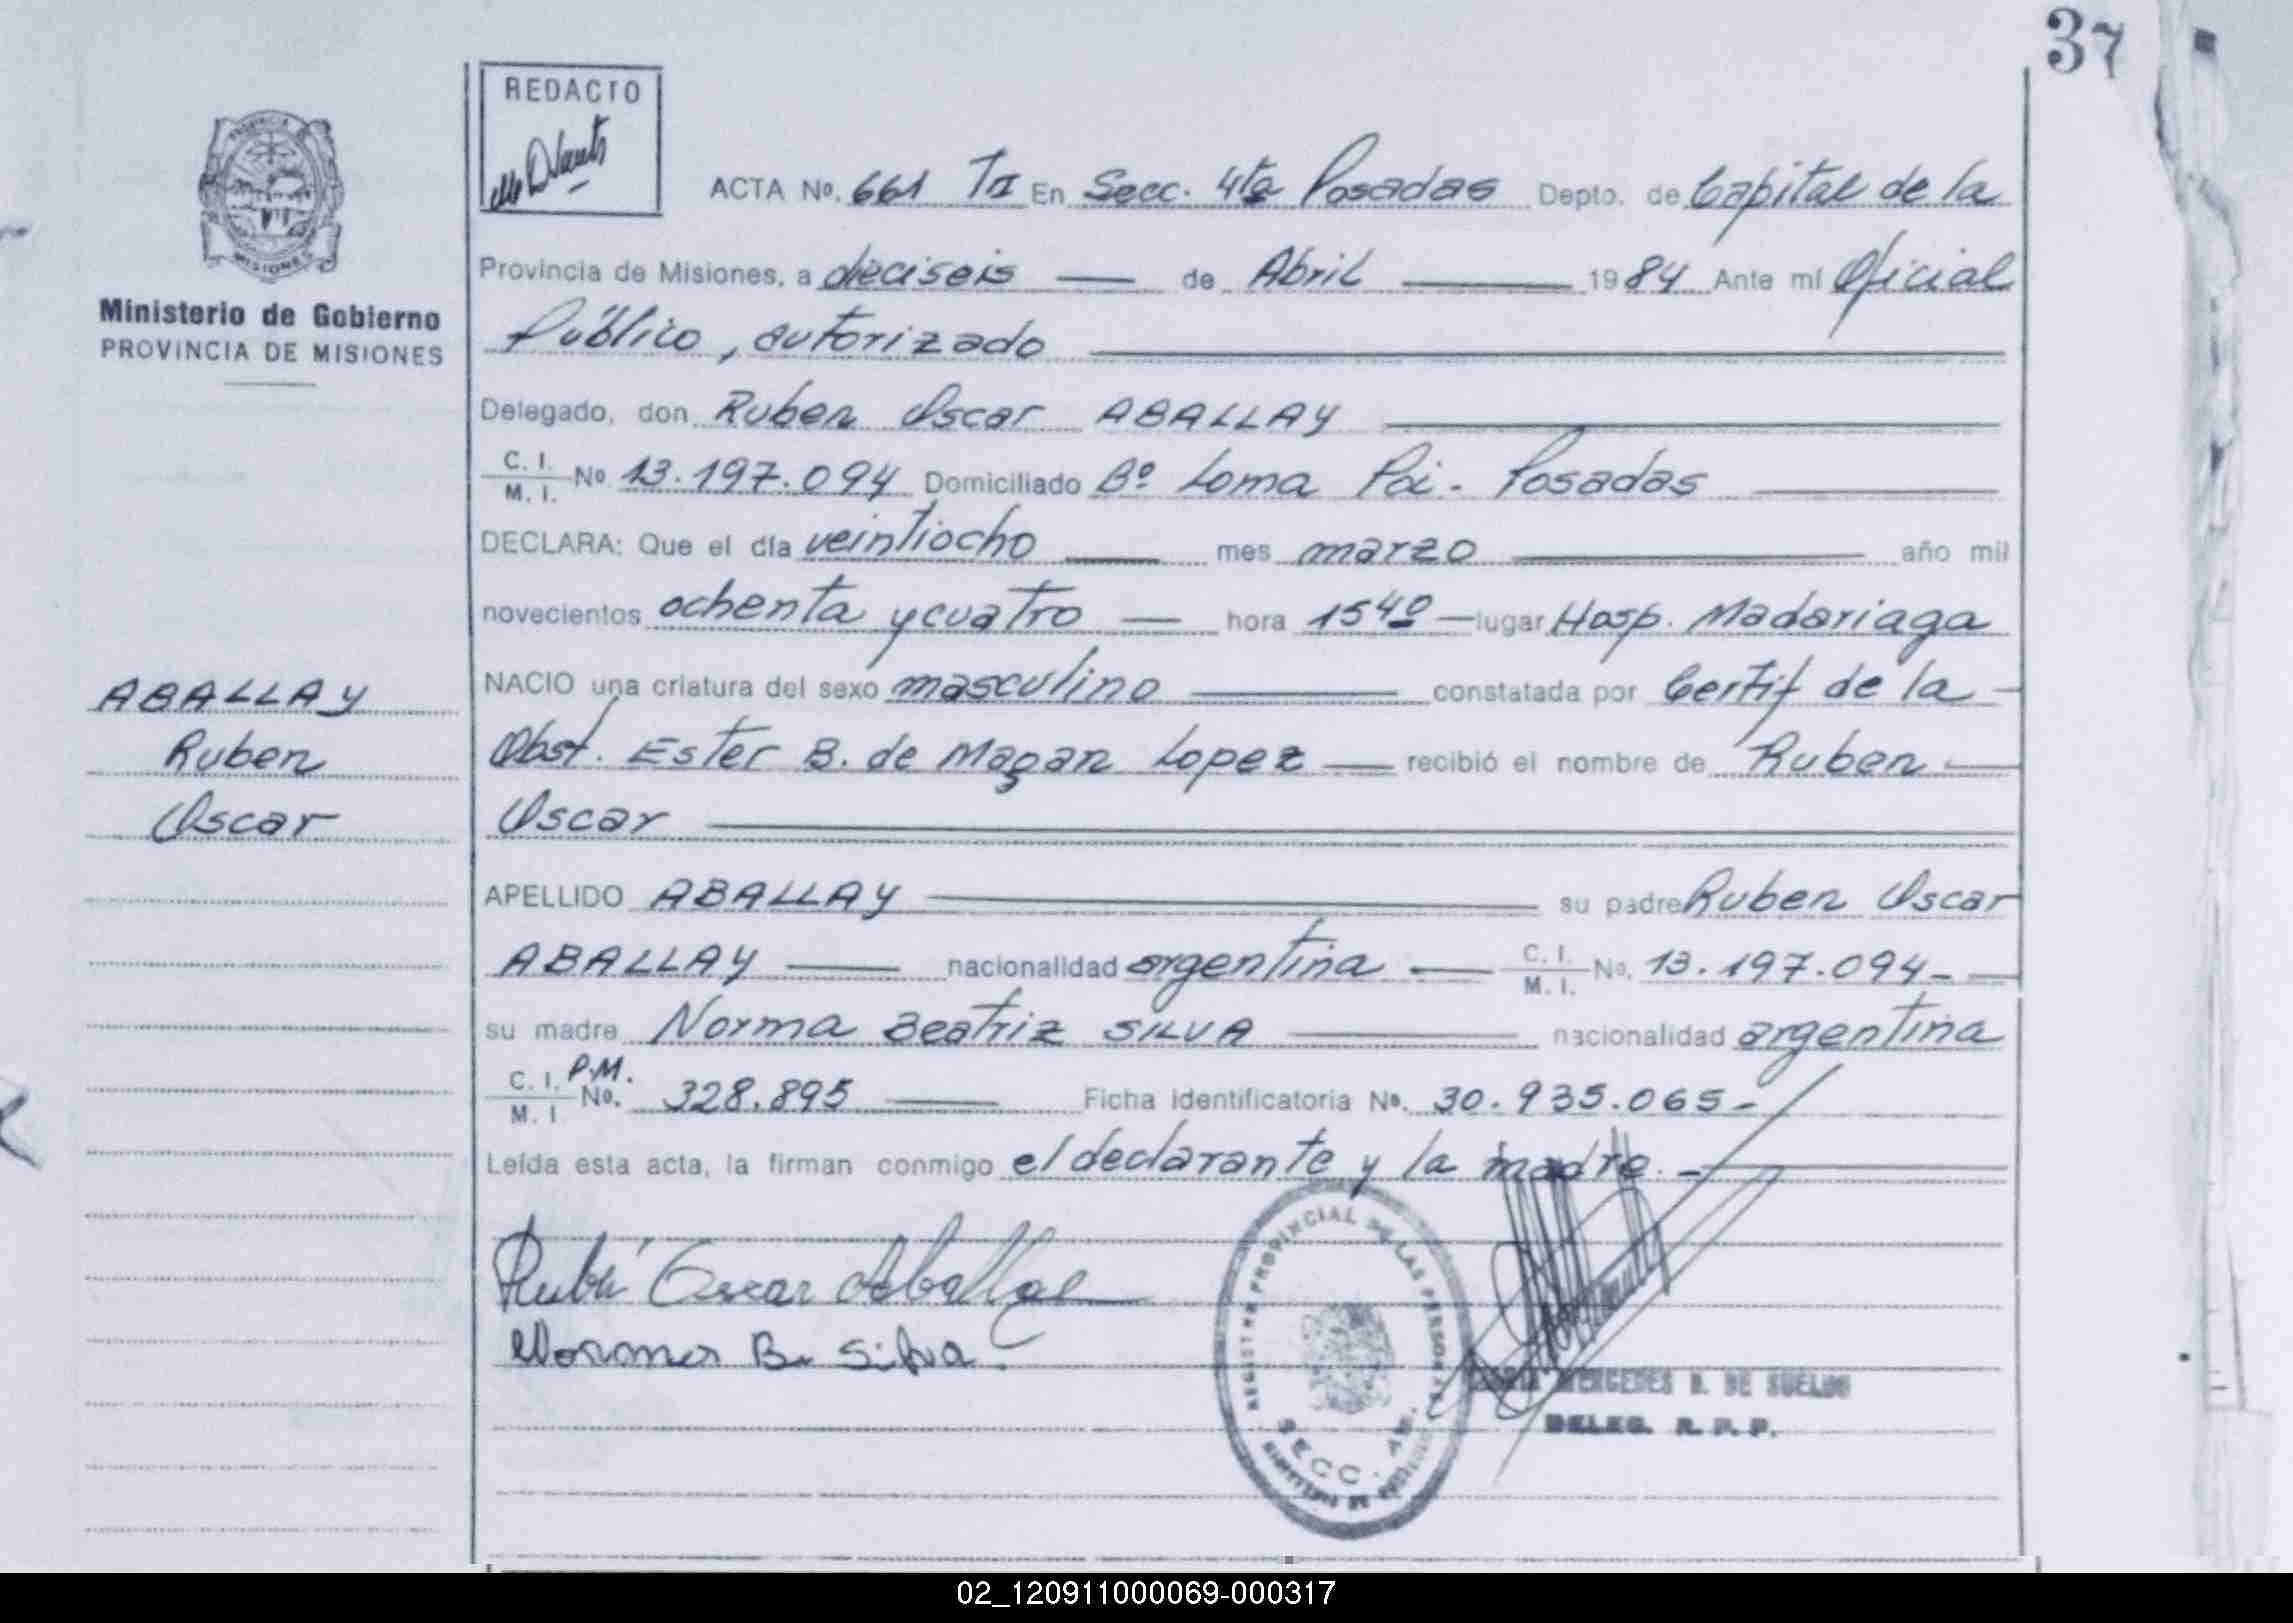 37
REDACTO
PROVINCIA DE
MISIONES
Ministerio de Gobierno
PROVINCIA DE MISIONES
ABALLAY
Ruben
Oscar
ACTA Nº. 661 TI En Secc. 4ta Posadas Depto. de Capital de la
Provincia de Misiones, a dieciseis — de Abril — 1984 Ante mí Oficial
Público, autorizado
Delegado, don Ruben Oscar ABALLAY
C. I. / M. I. Nº 13.197.094 Domiciliado Bº Loma Poi - Posadas
DECLARA: Que el día veintiocho — mes marzo — año mil
novecientos ochenta y cuatro — hora 15 40 — lugar Hosp. Madariaga
NACIO una criatura del sexo masculino — constatada por Certif de la —
Obst. Ester B. de Magan Lopez — recibió el nombre de Ruben —
Oscar
APELLIDO ABALLAY — su padre Ruben Oscar
ABALLAY — nacionalidad argentina — C. I. / M. I. Nº. 13.197.094 -
su madre Norma Beatriz SILVA — nacionalidad argentina
C. I. / M. I Nº. P.M. 328.895 — Ficha identificatoria Nº. 30.935.065 -
Leída esta acta, la firman conmigo el declarante y la madre. -
Rubén Oscar Aballay
Norma B. Silva.
REGISTRO PROVINCIAL DE LAS PERSONAS
SECC. 4ta.
MERCEDES D. DE SUELDO
DELEG. R. P. P.
02_120911000069-000317